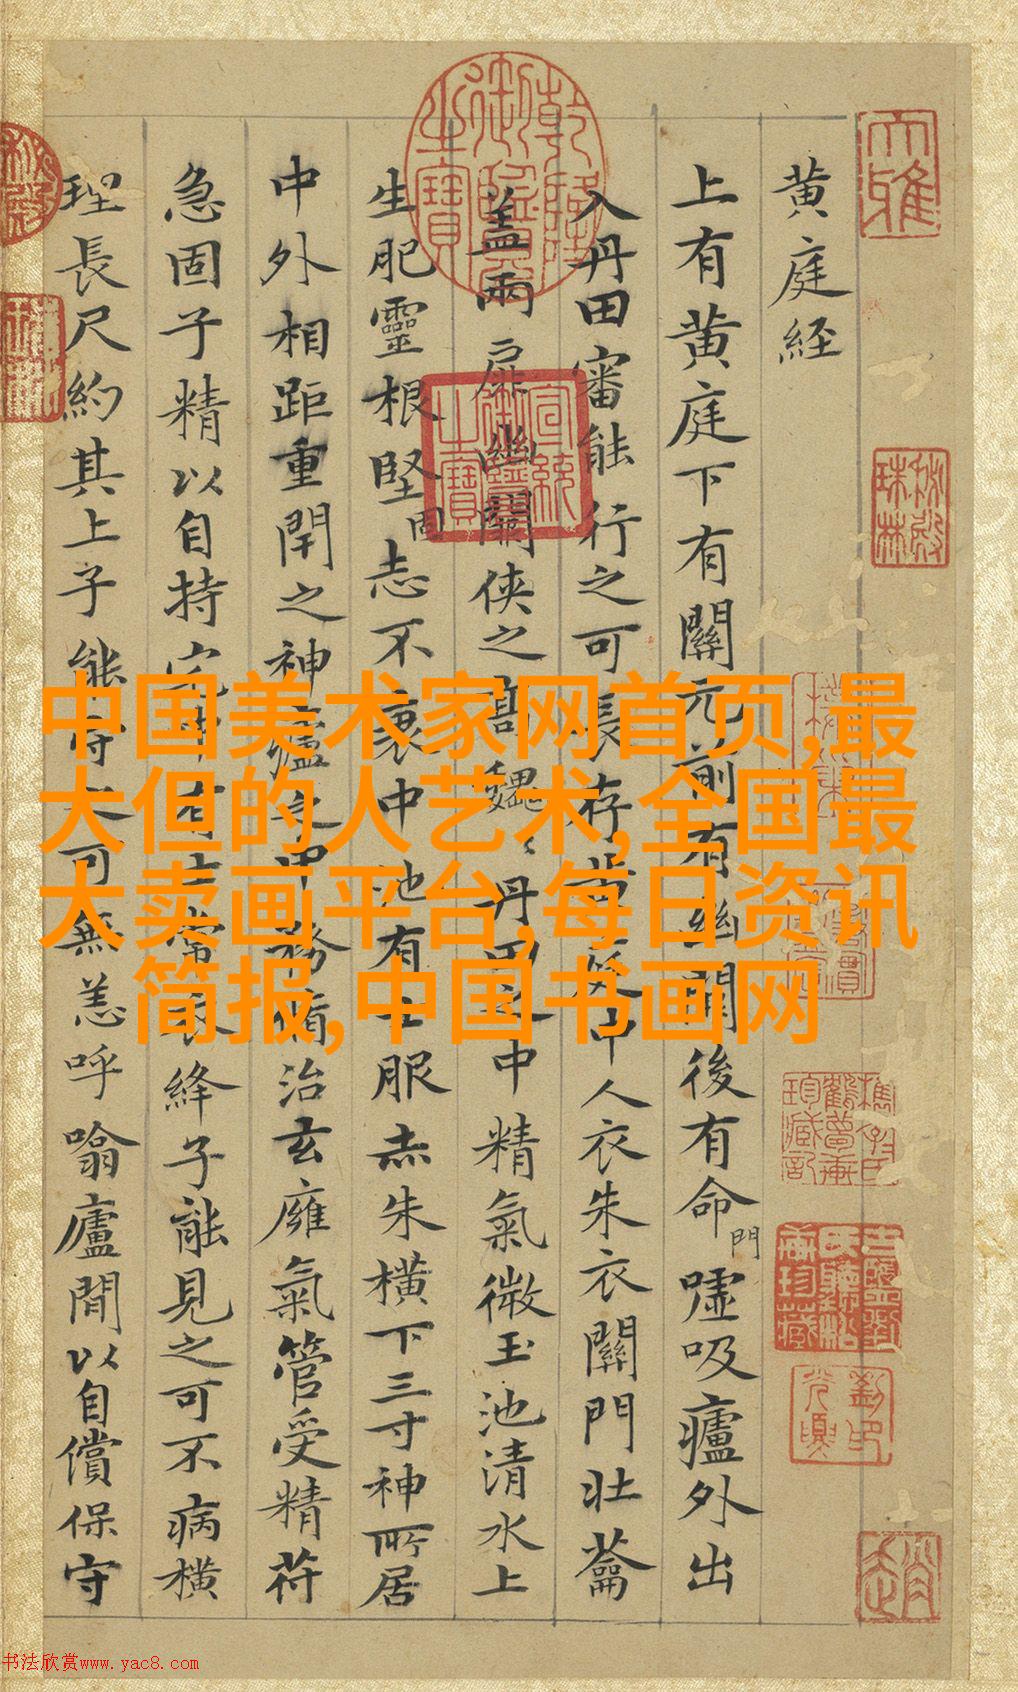 黄庭経
上有黄庭下有關元前有幽關後有命門嘘吸廬外出
入丹田審能行之可長存黄庭中人衣朱衣關門壯蘥
盖兩扉幽關俠之高魏〻丹田之中精氣微玉池清水上
生肥靈根堅固志不衰中池有士服赤朱横下三寸神所居
中外相距重閇之神廬之中務脩治玄廱氣管受精苻
急固子精以自持宅中有士常衣絳子能見之可不病横
理長尺約其上子能守之可無恙呼噏廬間以自償保守
乾隆御覽之寶
宣統御覽之寶
秘殿珠林
中国美术家网首页,最
大但的人艺术,全国最
大卖画平台,每日资讯
简报,中国书画网
书法欣赏www.yac8.com